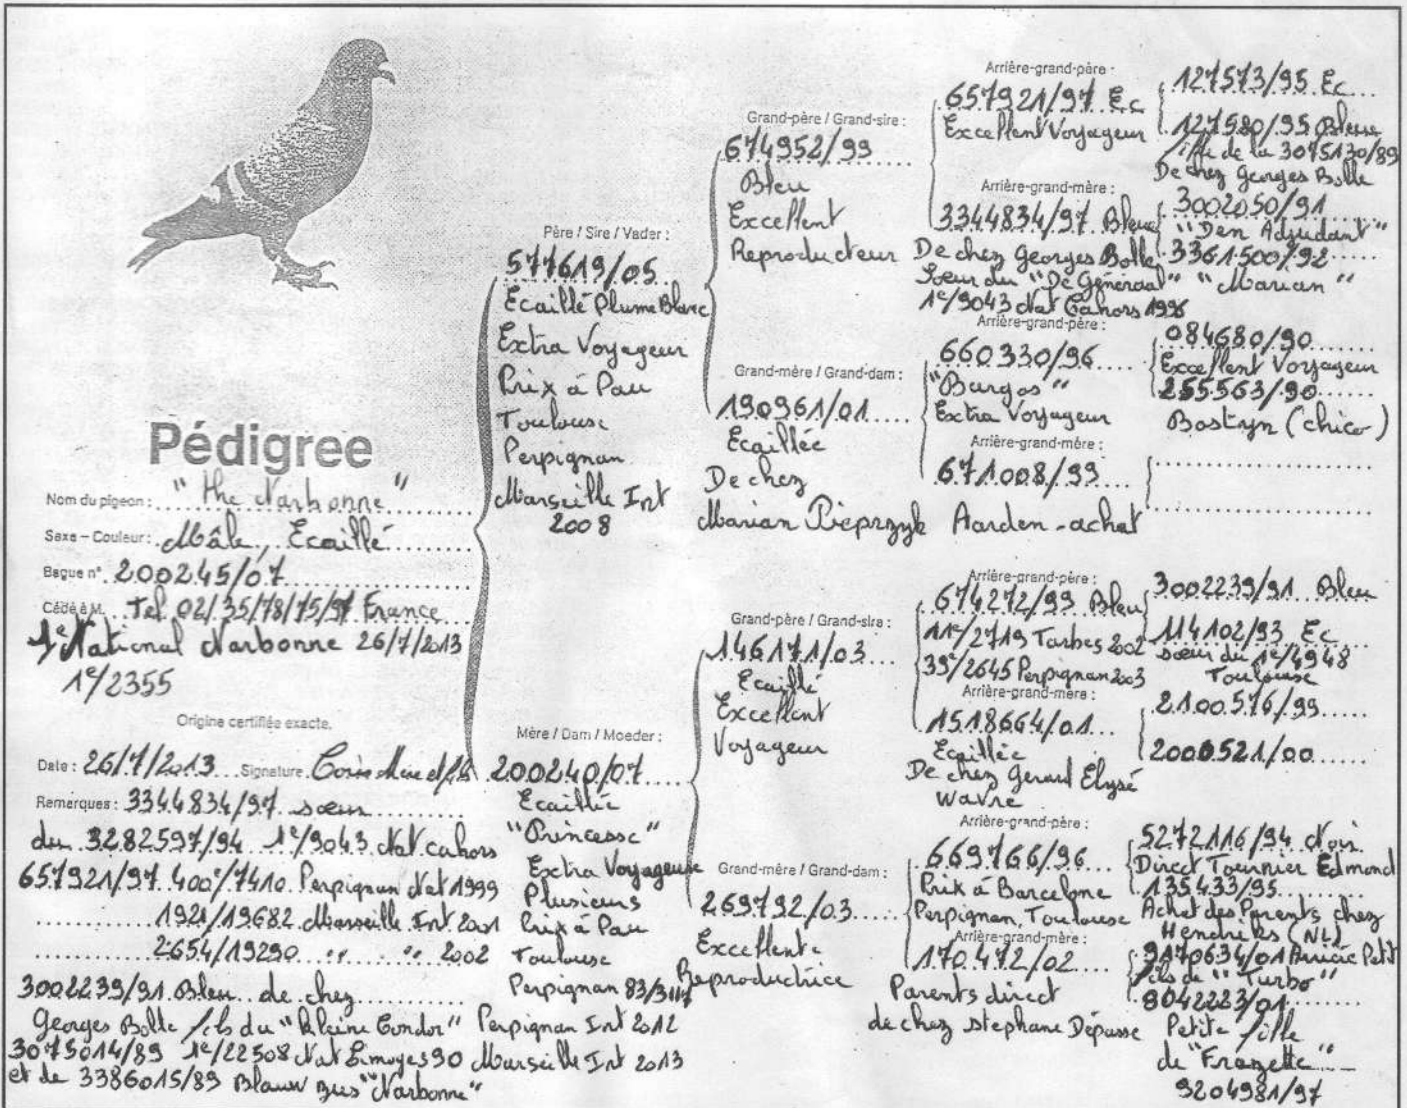 Pédigree
Nom du pigeon : "the Narbonne"
Sexe – Couleur : Mâle, Ecaillé
Bague n° 200245/07
Cédé à M. Tel. 02/35/78/75/97 France
1e National Narbonne 26/7/2013
1e/2355
Origine certifiée exacte.
Date : 26/7/2013 Signature
Remarques : 3344834/97 sœur
du 3282597/94 1e/9043 Nat cahors
657921/97 400e/7410 Perpignan Nat 1999
1921/19682 Marseille Int 2001
2654/19290 " " 2002
3002239/91 Bleu de chez
Georges Bolle fils du "kleine Condor"
3075014/89 1e/22508 Nat Limoges 90
et de 3386015/89 Blauw "Narbonne"
Père / Sire / Vader :
577619/05
Ecaillé Plume Blanc
Extra Voyageur
Prix à Pau
Toulouse
Perpignan
Marseille Int
2008
Mère / Dam / Moeder :
200240/07
Ecaillée
"Princesse"
Extra Voyageuse
Plusieurs
Prix à Pau
Toulouse
Perpignan 83/
Perpignan Int 2012
Marseille Int 2013
Grand-père / Grand-sire :
674952/99
Bleu
Excellent
Reproducteur
Grand-mère / Grand-dam :
190961/01
Ecaillée
De chez
Marian Pieprzyk
Grand-père / Grand-sire :
146171/03
Ecaillé
Excellent
Voyageur
Grand-mère / Grand-dam :
269792/03
Excellente
Reproductrice
Arrière-grand-père :
657921/97 Ec
Excellent Voyageur
Arrière-grand-mère :
3344834/97 Bleue
De chez Georges Bolle
Soeur du "De Generaal"
1e/9043 Nat Cahors 1996
Arrière-grand-père :
660330/96
"Burgos"
Extra Voyageur
Arrière-grand-mère :
671008/99
Aarden - achat
Arrière-grand-père :
674272/99 Bleu
11e/2719 Tarbes 2002
39e/2645 Perpignan 2003
Arrière-grand-mère :
1518664/01
Ecaillée
De chez Gerard Elysé
Wavre
Arrière-grand-père :
669766/96
Prix à Barcelone
Perpignan, Toulouse
Arrière-grand-mère :
170472/02
Parents direct
de chez Stephane Dépasse
127573/95 Ec
127580/95 Bleue
fille de la 3075130/89
De chez Georges Bolle
3002050/91
"Den Adjudant"
3361500/92
"Marian"
084680/90
Excellent Voyageur
255563/90
Bostyn (chico)
3002239/91 Bleu
114102/93 Ec
soeur du 1e/4948
Toulouse
2100576/99
2000521/00
5272116/94 Noir
Direct Tournier Edmond
135433/95
Achat des Parents chez
Hendriks (NL)
9170634/01 Petit
fils de "Turbo"
8042223/01
Petite fille
de "Frazette"
9204981/97